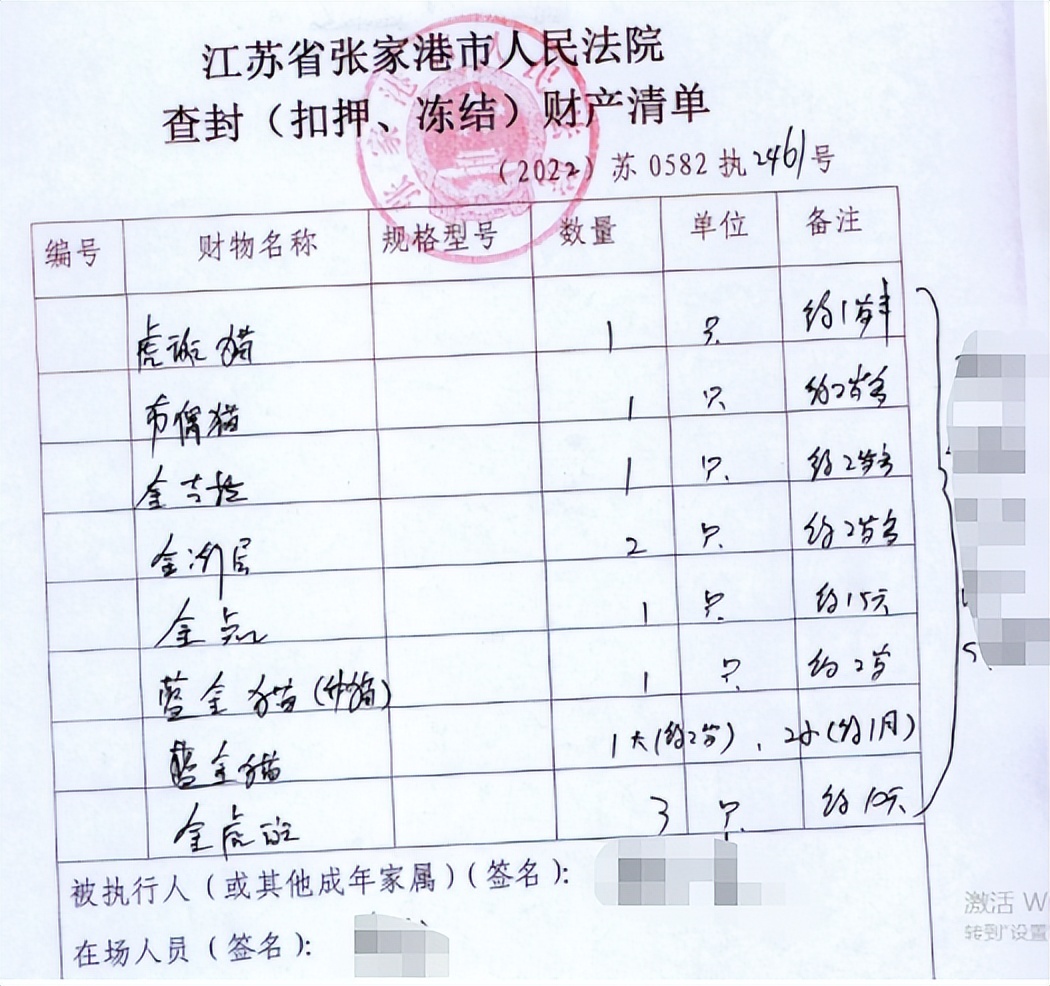 江苏省张家港市人民法院
查封（扣押、冻结）财产清单
（2022）苏 0582 执2461号
编号 财物名称 规格型号 数量 单位 备注
虎斑猫 1 只 约1岁半
布偶猫 1 只 约2岁多
金吉拉 1 只 约2岁多
金渐层 2 只 约2岁多
金点 1 只 约15天
蓝金猫( ) 1 只 约2岁
蓝金猫 1大(约2岁)，2小(约1月)
金虎斑 3 只 约10天
被执行人（或其他成年家属）（签名）：
在场人员（签名）：
激活 W
转到"设置